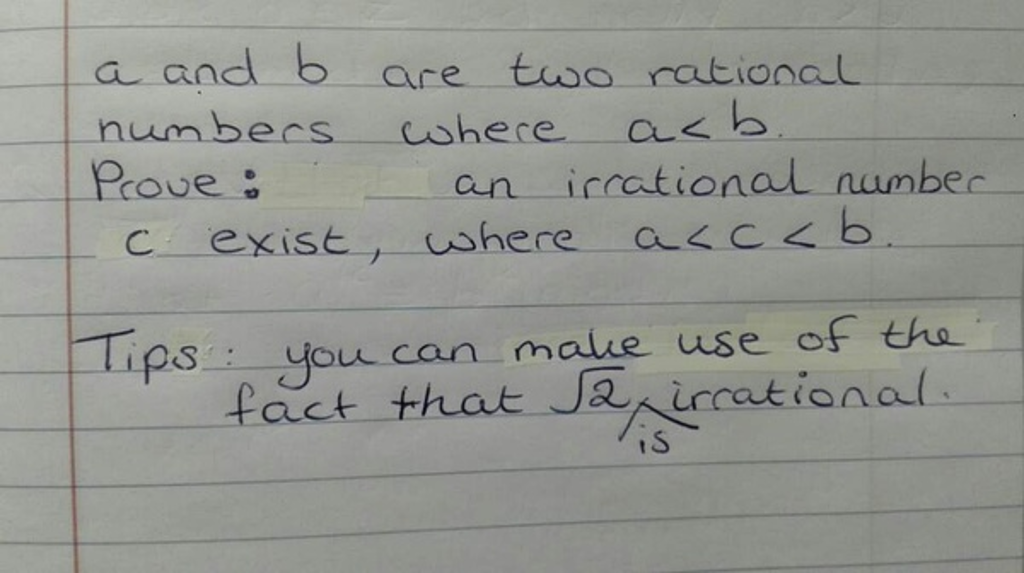 a and b are two rational
numbers where a<b.
Prove: an irrational number
c exist, where a<c<b.
Tips: you can make use of the
fact that √2 is irrational.